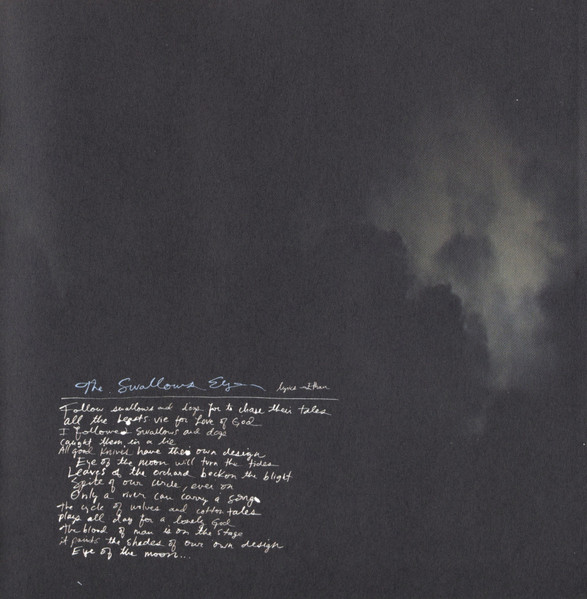 The Swallows Eye lyrics - Ethan
Follow swallows and dogs for to chase their tales
all the beasts vie for love of God
I followed swallows and dogs
caught them in a lie
All good knives have their own design
Eye of the moon will turn the tides
Leaves of the orchard beckon the blight
Spite of our wide, ever on
Only a river can carry a song
The cycle of wolves and cotton tales
plays all day for a lonely God
The blood of man is on the stage
it paints the shades of our own design
Eye of the moon...